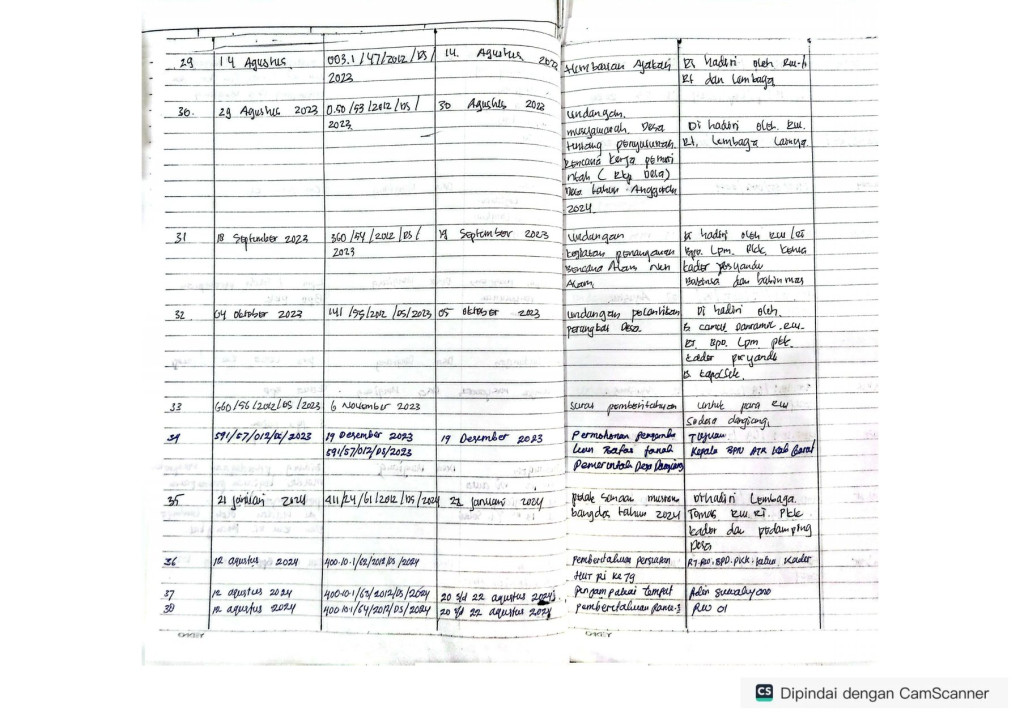 29 14 Agustus 003.1/47/2012/DS/ 14. Agustus 2023 Di hadiri oleh RW-h
2023 Rt dan Lembaga
30. 29 Agustus 2023 0.50/53/2012/DS/ 30 Agustus 2023 undangan.
2023 musyawarah. Desa Di hadiri oleh. RW.
tentang penyusunan. Rt. Lembaga Lainnya.
Rencana kerja pemeri
ntah ( Rkp Desa)
Desa tahun Anggaran
2024
31 18 September 2023 360/54/2012/DS/ 19 September 2023 undangan Di hadiri oleh RW/Rt
2023 kegiatan penanganan BPD. Lpm. PKK. Ketua
Bencana Alam kader posyandu
Alam. Babinsa dan babinmas
32 04 Oktober 2023 141/55/2012/DS/2023 05 Oktober 2023 undangan pelantikan Di hadiri oleh.
perangkat Desa. camat Danramil. RW.
Rt. BPD. Lpm PKK.
kader posyandu
kapolsek.
33 660/56/2012/DS/2023 6 November 2023 surat pemberitahuan untuk para RW
34 591/57/012/DS/2023 19 Desember 2023 19 Desember 2023 Permohonan Tujuan
591/57/012/DS/2023 tanah Kepala BPN ATR Kab Barat
Pemerintah Desa
35 21 januari 2024 411/24/61/2012/DS/2024 22 januari 2024 Lembaga.
bangdes tahun 2024 Tomas RW. RT. PKK
kader dan
Desa
36 12 agustus 2024 400.10.1/62/2012/DS/2024 Pemberitahuan RT.RW.BPD.PKK. kader
HUT RI Ke 79
37 12 agustus 2024 400.10.1/63/2012/DS/2024 20 s/d 22 agustus 2024 Tempat
38 12 agustus 2024 400.10.1/64/2012/DS/2024 20 s/d 22 agustus 2024 pemberitahuan RW 01
CS Dipindai dengan CamScanner